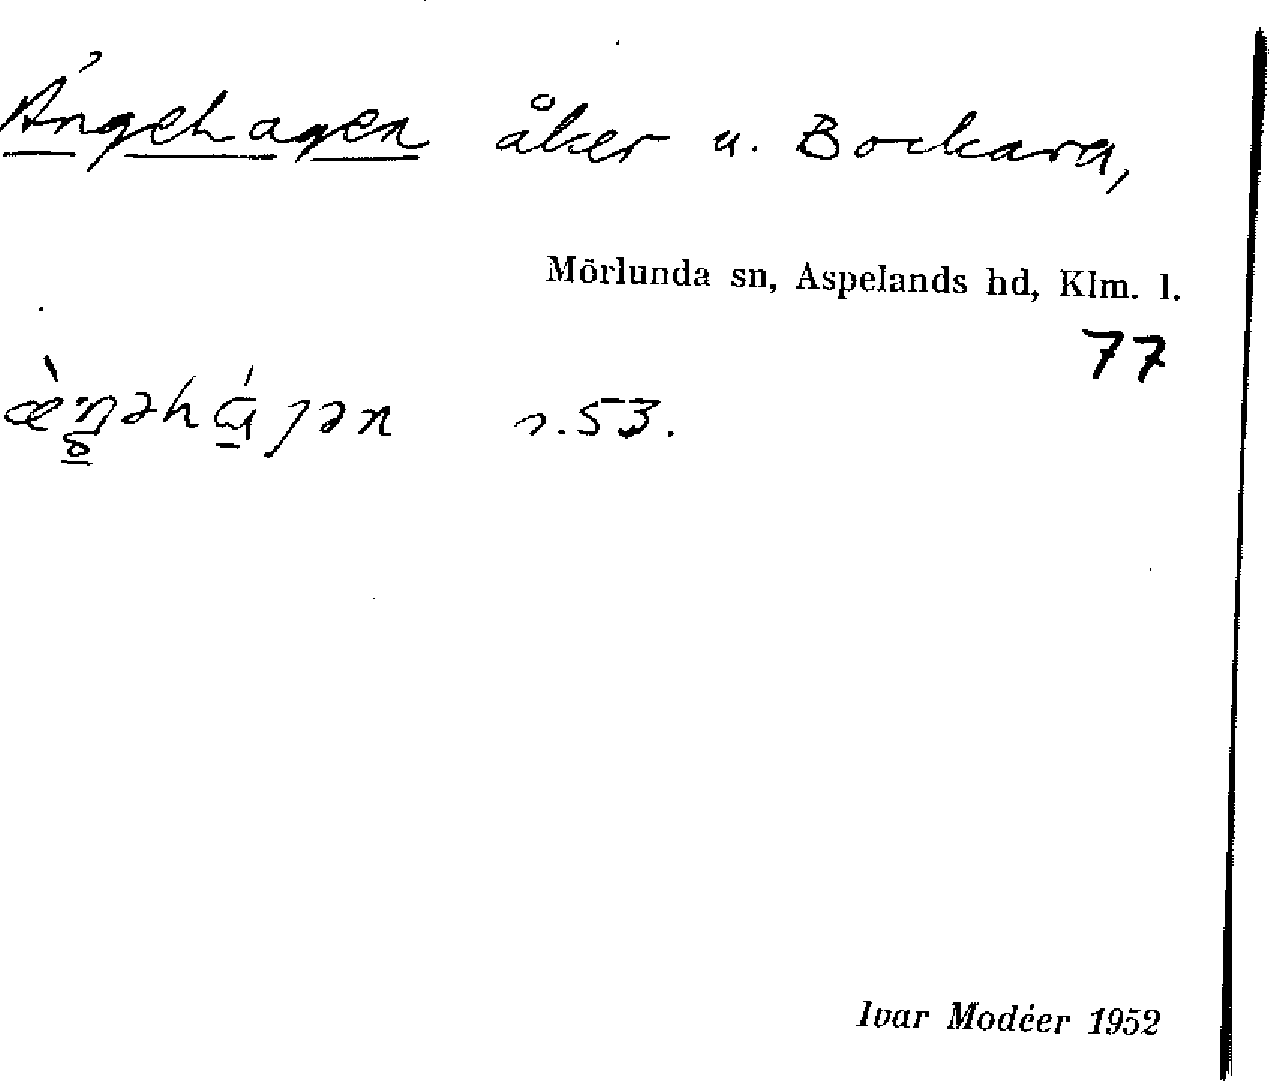 Ängehagen åker u. Bockara,
Mörlunda sn, Aspelands hd, Klm. l.
77
s. 53.
Ivar Modéer 1952